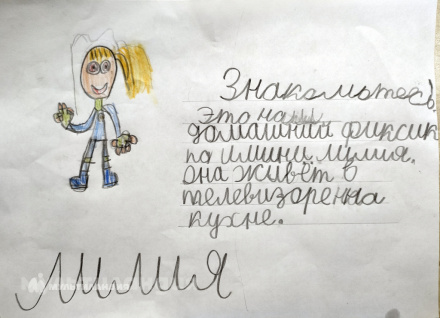 Знакомьтесь
это наш
домашний фиксик
по имини Лилия.
она живёт в
телевизоре на
кухне.
Лилия